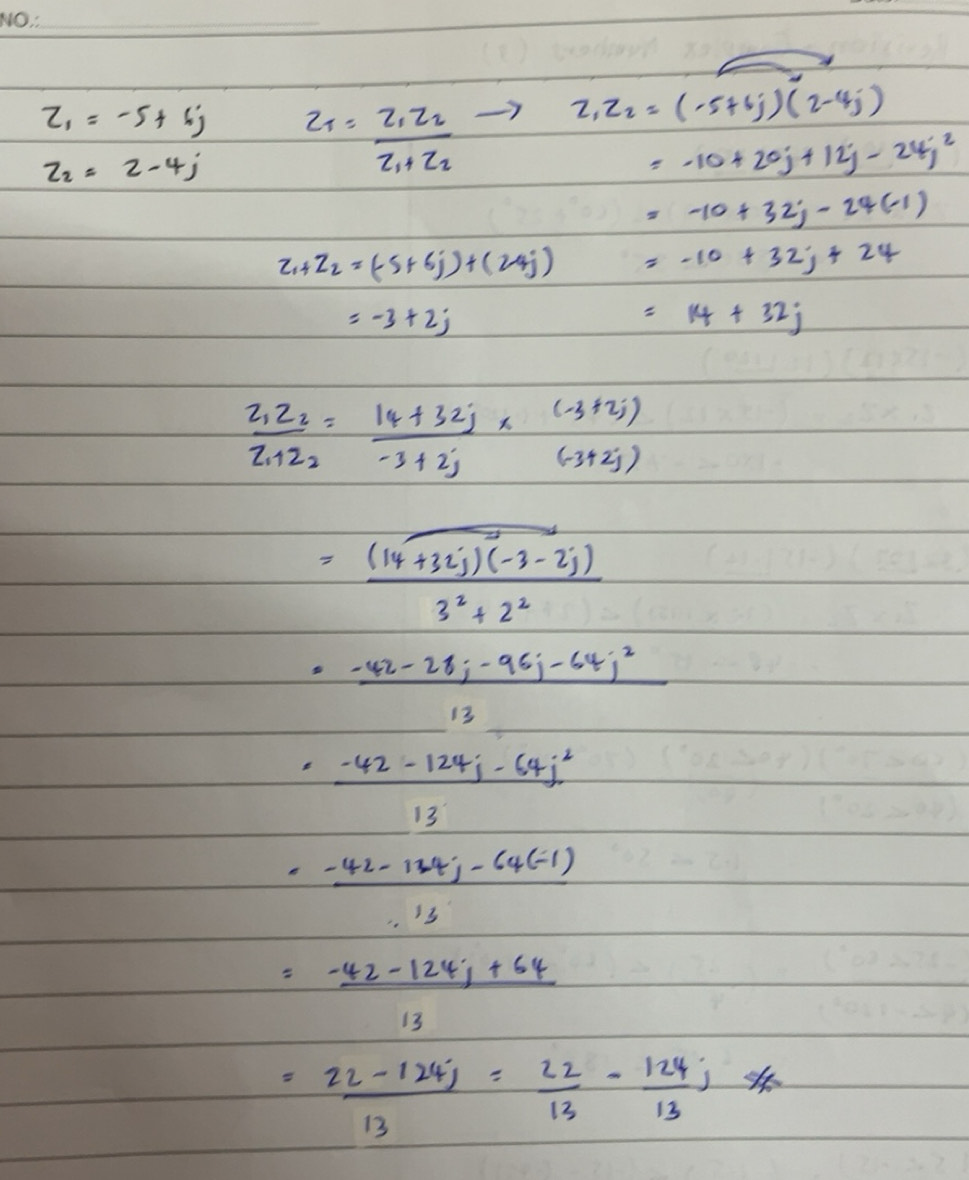 NO.:
Z₁ = -5 + 6j   Z_T = Z₁Z₂ / Z₁+Z₂ → Z₁Z₂ = (-5+6j)(2-4j)
Z₂ = 2-4j   = -10 + 20j + 12j - 24j²
= -10 + 32j - 24(-1)
Z₁+Z₂ = (-5+6j)+(2-4j)   = -10 + 32j + 24
= -3+2j   = 14 + 32j
Z₁Z₂ / Z₁+Z₂ = 14+32j / -3+2j × (-3+2j) / (-3+2j)
= (14+32j)(-3-2j) / 3² + 2²
= -42-28j-96j-64j² / 13
= -42-124j-64j² / 13
= -42-124j-64(-1) / 13
= -42-124j+64 / 13
= 22-124j / 13 = 22/13 - 124/13 j